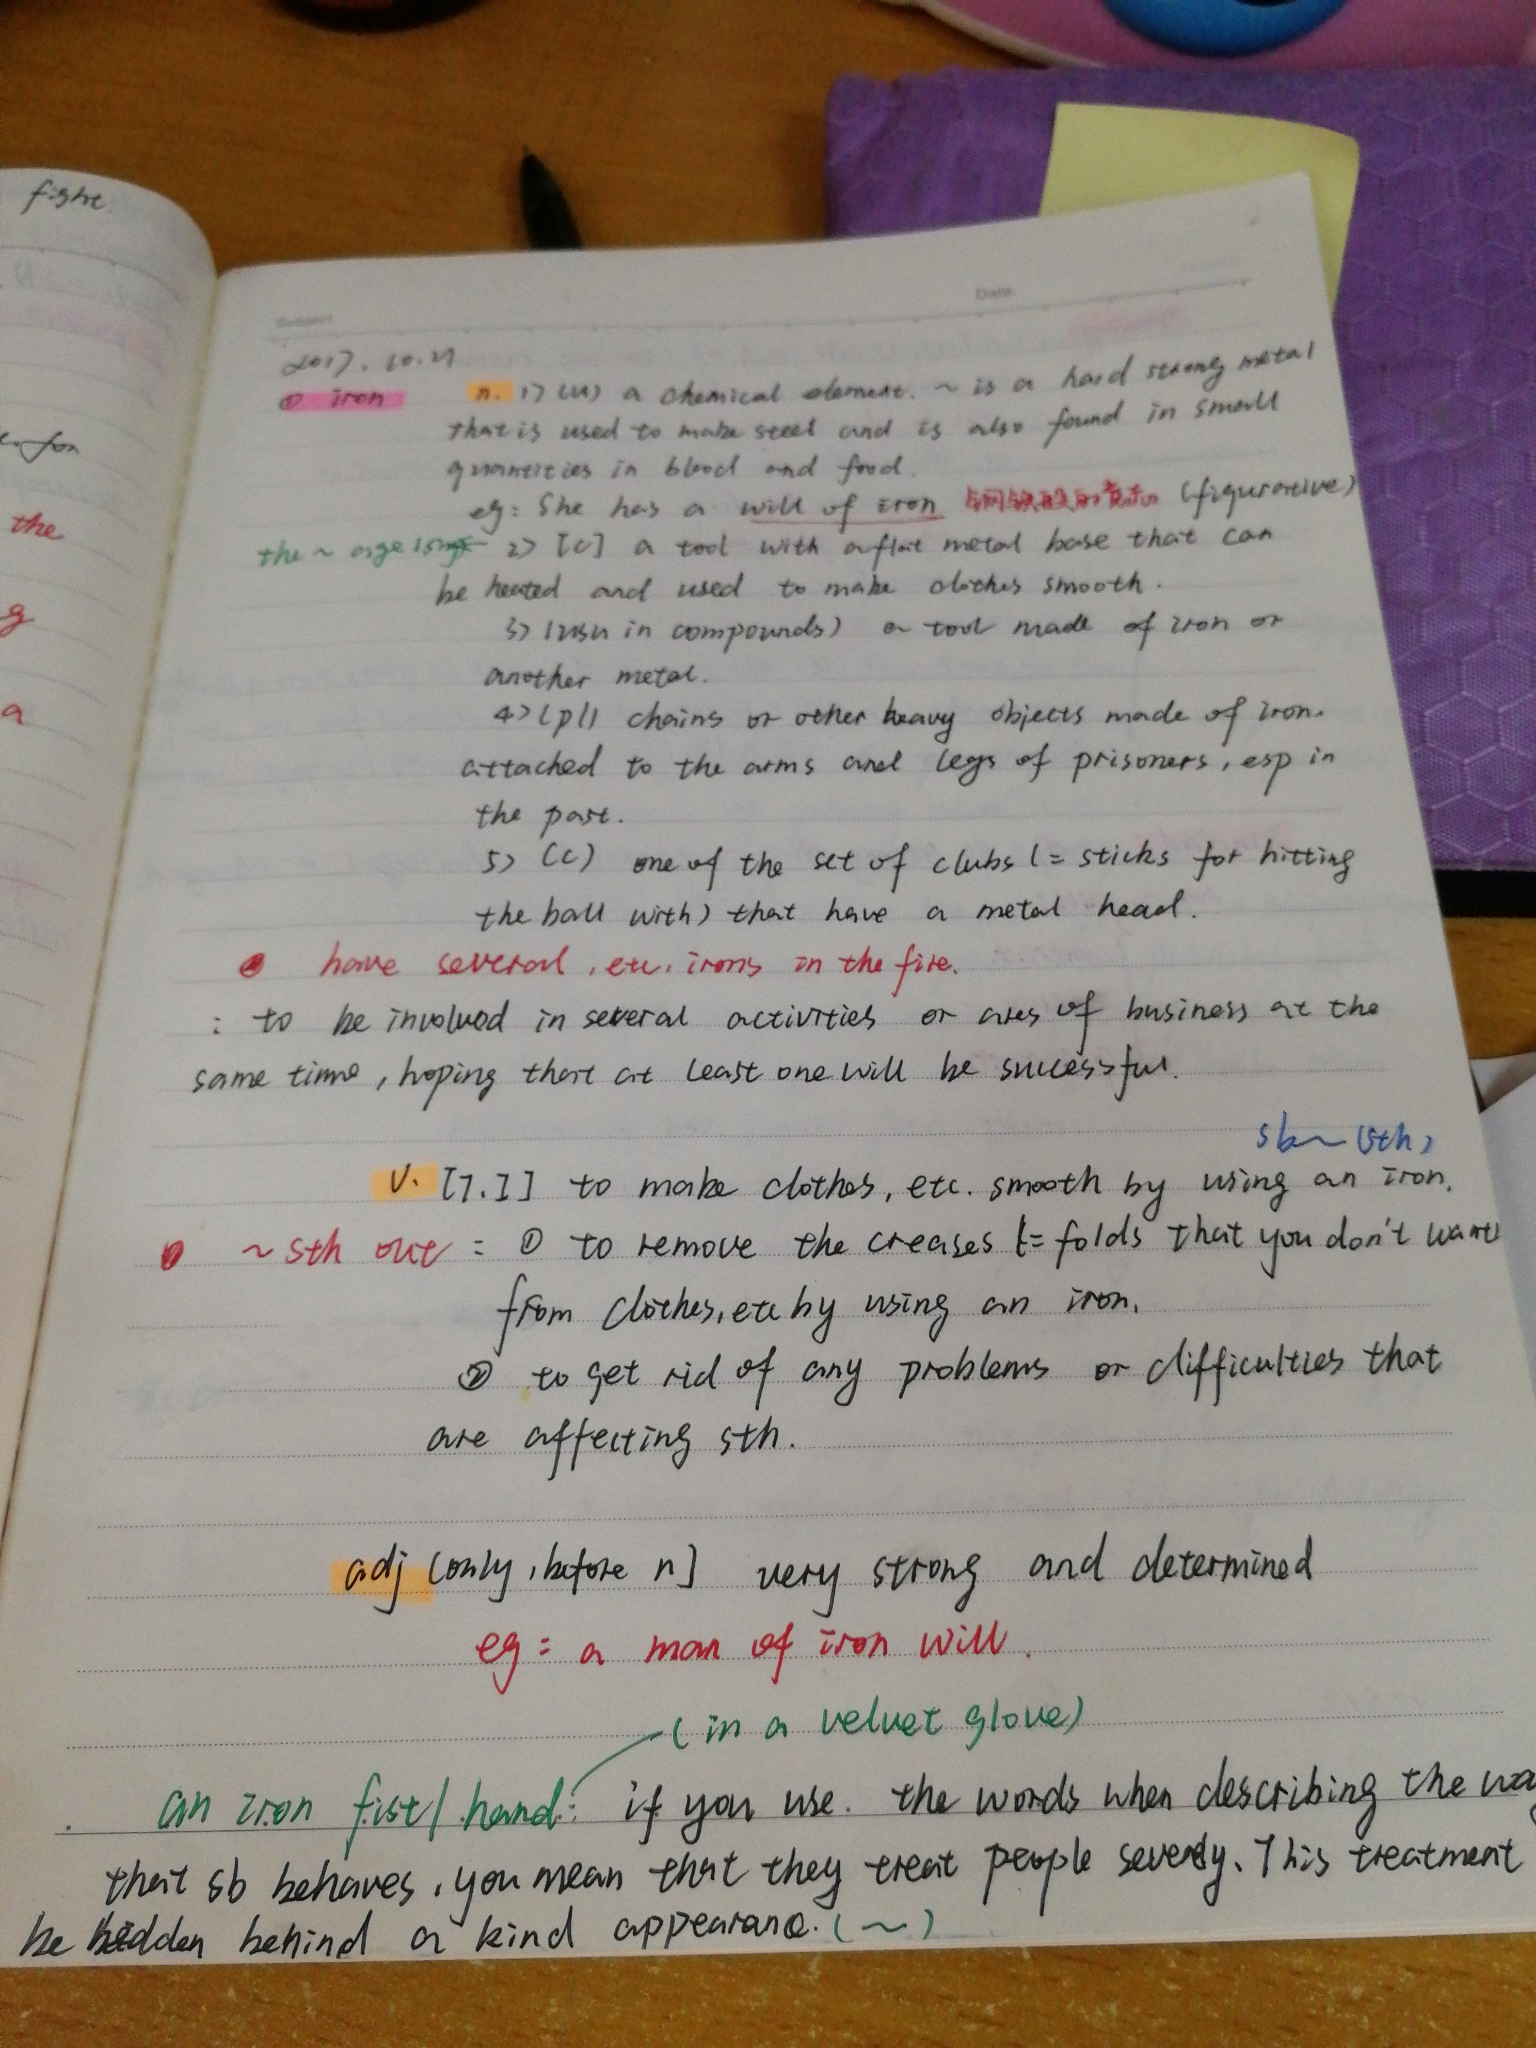 fight.
the
g
a
Subject
Date
2017.10.27
① iron n. 1) (U) a chemical element. ~ is a hard strong metal
that is used to make steel and is also found in small
quantities in blood and food.
eg: She has a will of iron (figurative)
the ~ age 2) [C] a tool with a flat metal base that can
be heated and used to make clothes smooth.
3) (usu in compounds) a tool made of iron or
another metal.
4) (pl) chains or other heavy objects made of iron.
attached to the arms and legs of prisoners, esp in
the past.
5) (C) one of the set of clubs (= sticks for hitting
the ball with) that have a metal head.
have several, etc. irons in the fire.
: to be involved in several activities or ares of business at the
same time, hoping that at least one will be successful.
sb ~ (sth)
v. [T.I] to make clothes, etc. smooth by using an iron.
~ sth out = ① to remove the creases (= folds that you don't want
from clothes, etc by using an iron.
② to get rid of any problems or difficulties that
are affecting sth.
adj (only, before n] very strong and determined
eg = a man of iron will.
(in a velvet glove)
an iron fist / hand: if you use. the words when describing the wa
that sb behaves, you mean that they treat people severely. This treatment
be hidden behind a kind appearance. (~)